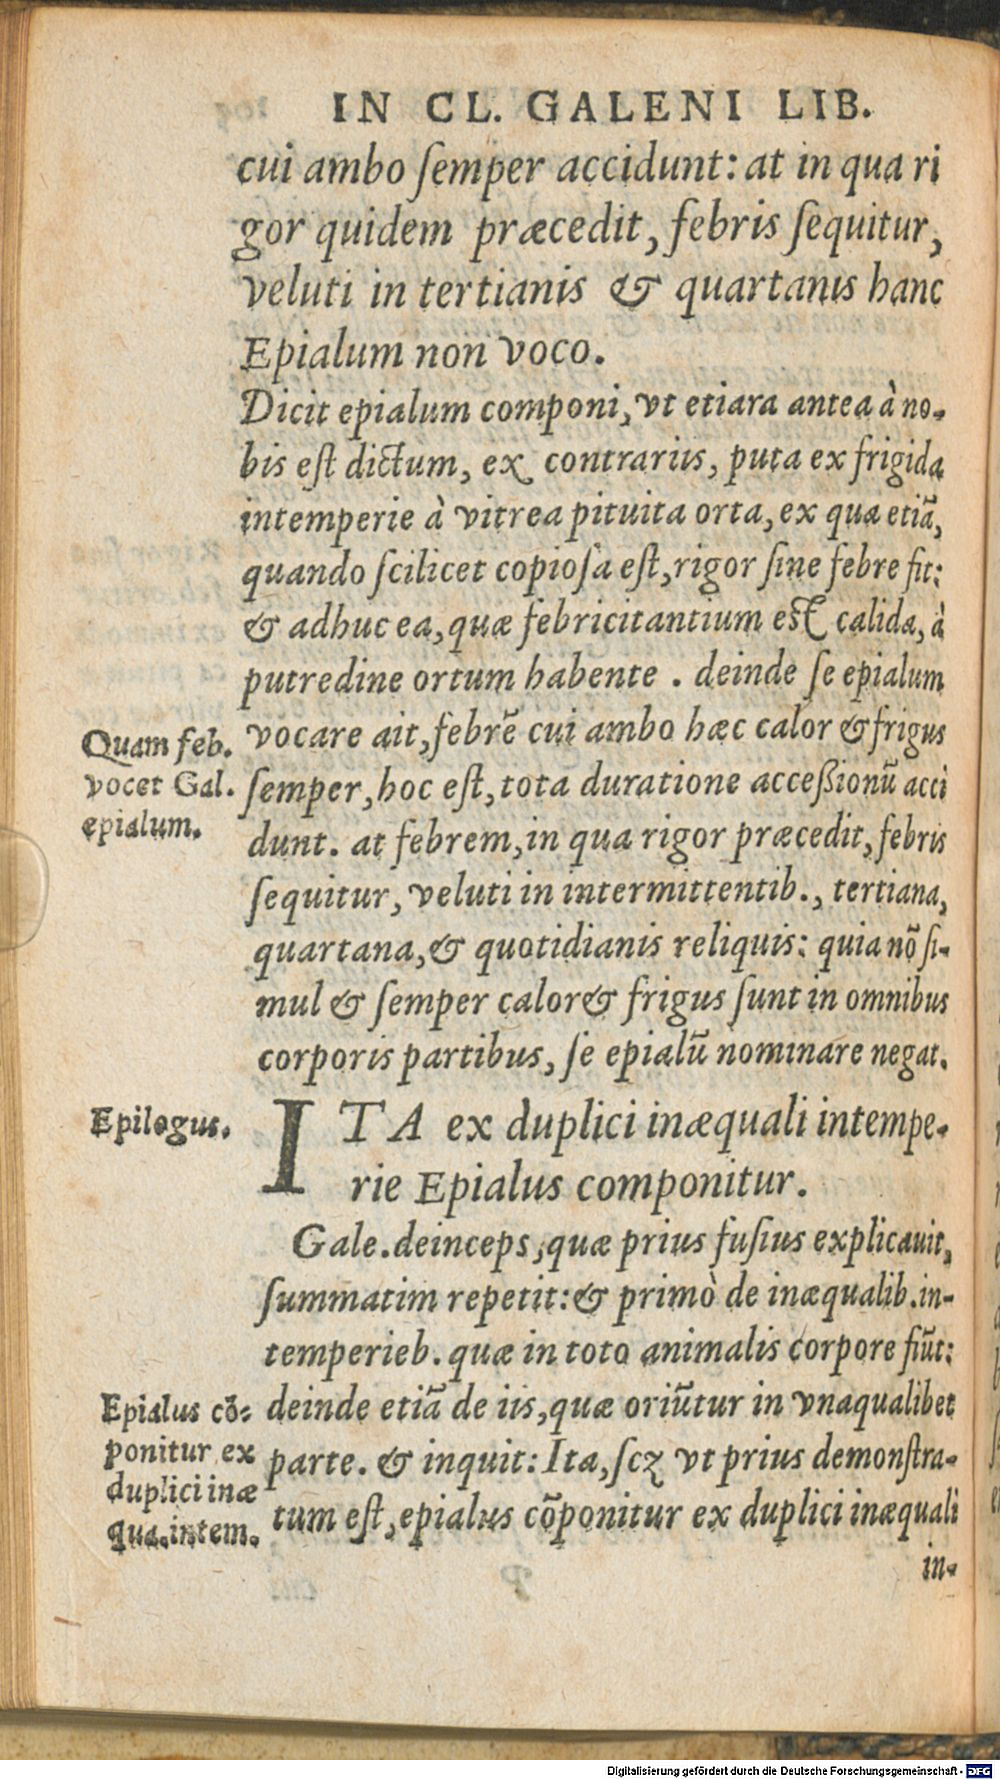 IN CL. GALENI LIB.
cui ambo ſemper accidunt: at in qua ri
gor quidem præcedit, febris ſequitur,
veluti in tertianis & quartanis hanc
Epialum non voco.
Dicit epialum componi, vt etiara antea à no-
bis eſt dictum, ex contrariis, puta ex frigida
intemperie à vitrea pituita orta, ex qua etiã,
quando ſcilicet copioſa eſt, rigor ſine febre fit:
& adhuc ea, quæ febricitantium est calida, à
putredine ortum habente . deinde ſe epialum
vocare ait, febrẽ cui ambo hæc calor & frigus
ſemper, hoc eſt, tota duratione acceßionũ acci
dunt. at febrem, in qua rigor præcedit, febris
ſequitur, veluti in intermittentib., tertiana,
quartana, & quotidianis reliquis: quia nõ ſi-
mul & ſemper calor & frigus ſunt in omnibus
corporis partibus, ſe epialũ nominare negat.
Quam feb.
vocet Gal.
epialum.
Epilogus.
ITA ex duplici inæquali intempe-
rie Epialus componitur.
Gale. deinceps, quæ prius fuſius explicauit,
ſummatim repetit: & primò de inæqualib. in-
temperieb. quæ in toto animalis corpore fiũt:
deinde etiã de iis, quæ oriũtur in vnaqualibet
parte. & inquit: Ita, ſcz vt prius demonſtra-
tum eſt, epialus cõponitur ex duplici inæquali
Epialus cõ-
ponitur ex
duplici inæ
qua. intem.
in-
Digitalisierung gefördert durch die Deutsche Forschungsgemeinschaft - DFG